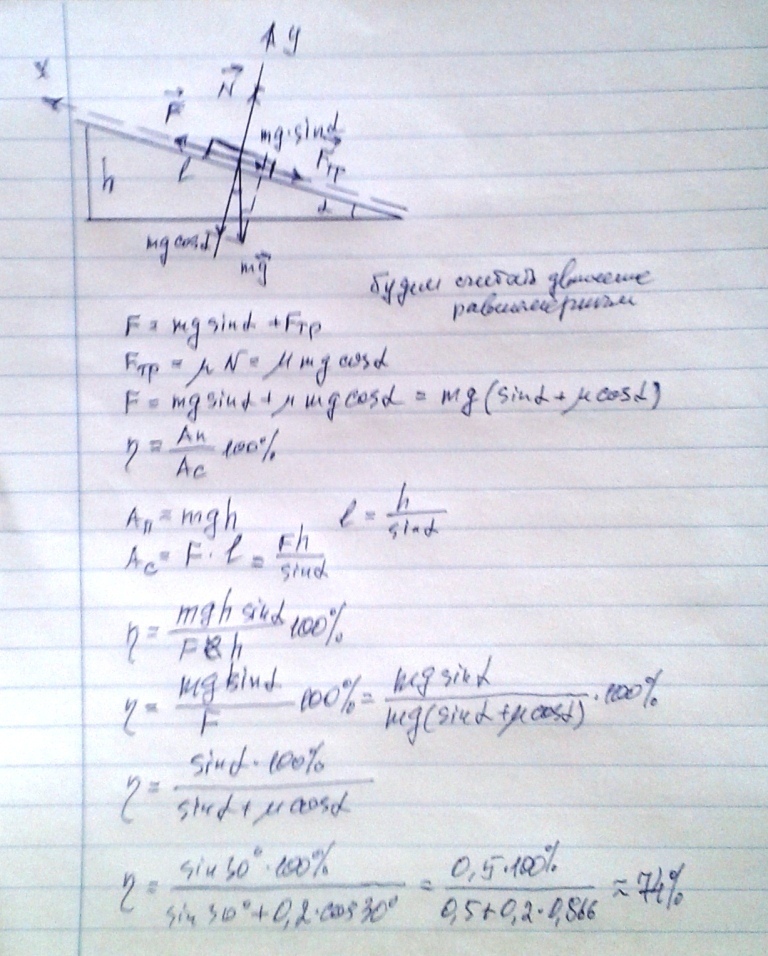 y
x
N
F
mg·sinα
Fтр
l
h
α
mg cosα
mg
будем считать движение
равномерным
F = mg sinα + Fтр
Fтр = μ N = μ mg cosα
F = mg sinα + μ mg cosα = mg (sinα + μ cosα)
η = Aп/Aс 100%
Aп = mgh l = h/sinα
Aс = F · l = Fh/sinα
η = mgh sinα/F h 100%
η = mg sinα/F 100% = mg sinα/mg(sinα + μ cosα) · 100%
η = sinα · 100%/sinα + μ cosα
η = sin 30° · 100%/sin 30° + 0,2 · cos 30° = 0,5 · 100%/0,5 + 0,2 · 0,866 ≈ 74%